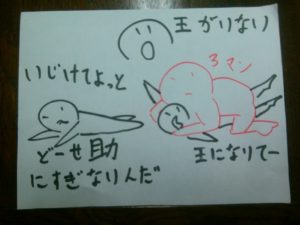 王がいない
いじけてよっと
3マン
どーせ助
にすぎなりんだ
王になりてー